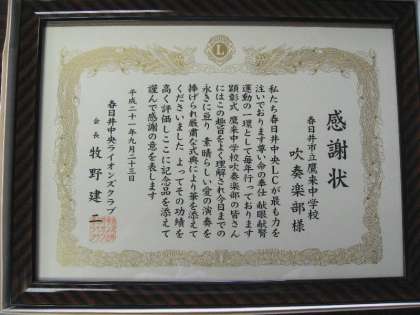 感謝状
春日井市立鷹来中学校
吹奏楽部様
私たち春日井中央LCが最も力を
注いでおります尊い命の奉仕 献眼献腎
運動の一環として毎年行っております
顕彰式 鷹来中学校吹奏楽部の皆さん
にはこの趣旨をよく理解され今日までの
永きに亘り 素晴らしい愛の演奏を
捧げられ厳粛な式典により華を添えて
くださいました よってその功績を
高く評価しここに記念品を添えて
謹んで感謝の意を表します
平成二十一年九月二十三日
春日井中央ライオンズクラブ
会長 牧野建二
L